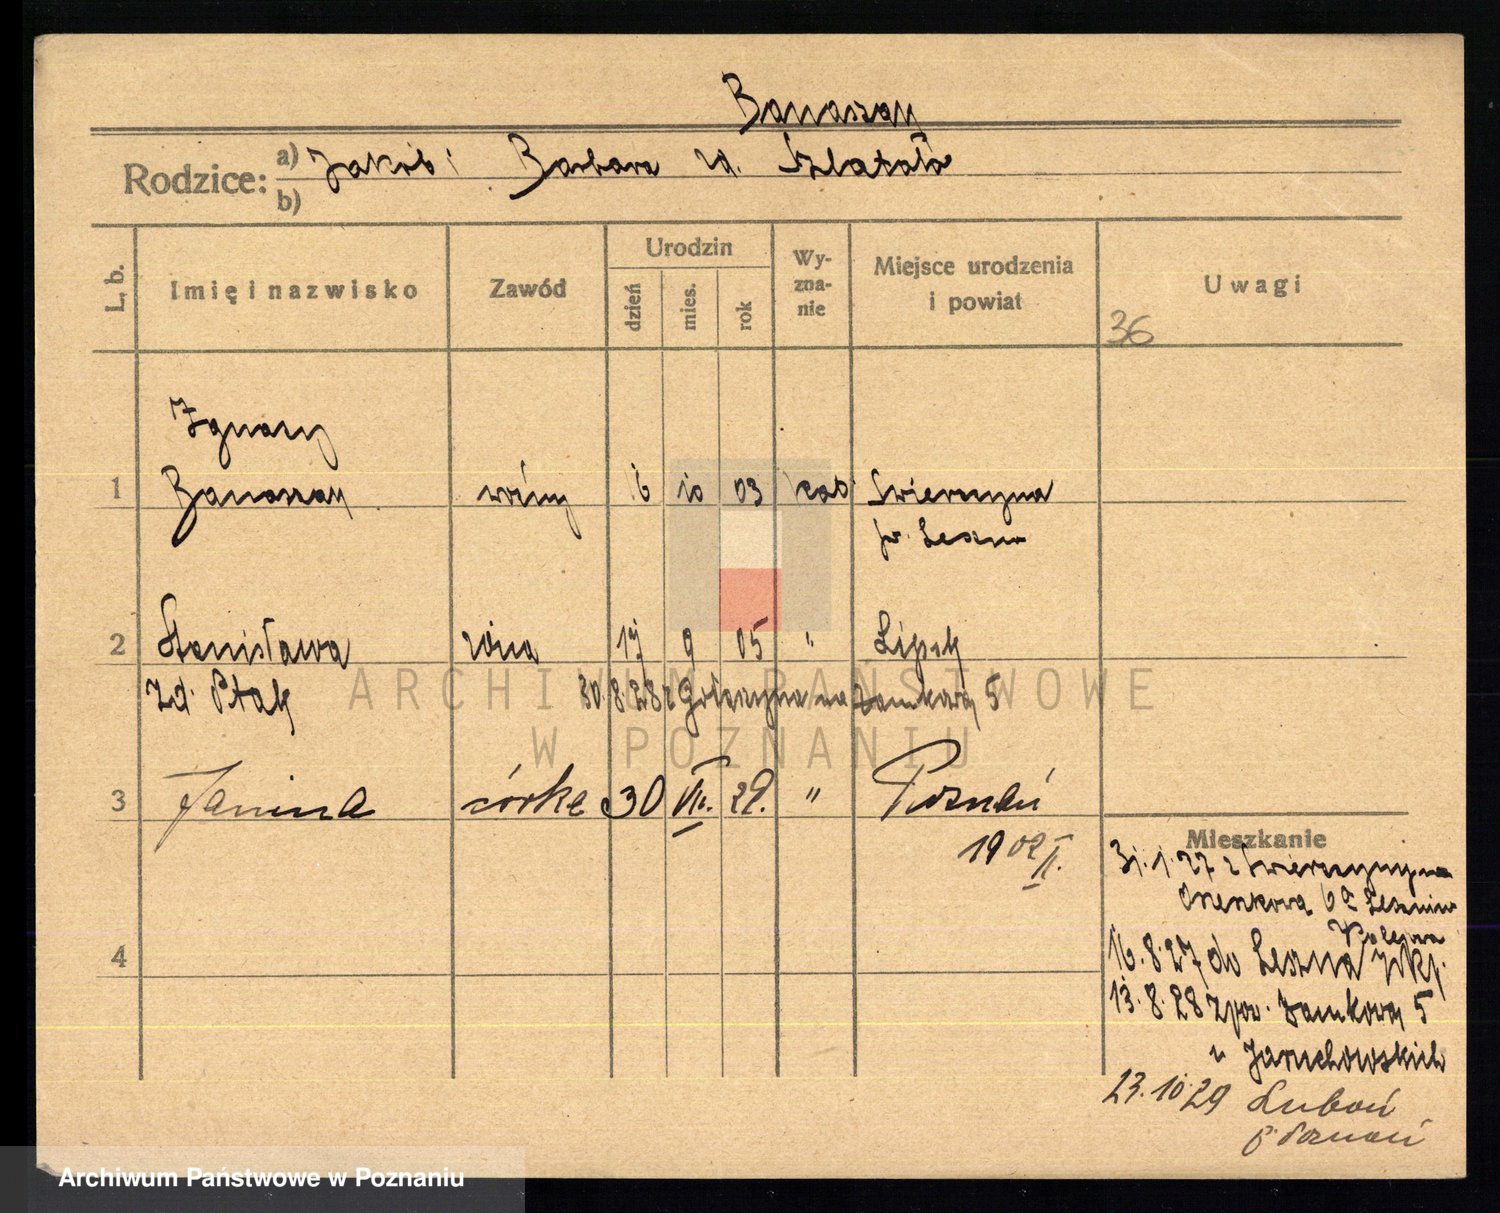 Banaszak
Rodzice: a) Jakób i Barbara zd. Szlatała
b)
L. b. Imię i nazwisko Zawód Urodzin Wyznanie Miejsce urodzenia i powiat Uwagi
dzień mies. rok
36
Ignacy
1 Banaszak woźny 16 10 03 kat Swierczyna
pr. Leszno
2 Stanisława żona 17 9 05 " Lipsk
zd. Ptak 30.8.28 z na Zamkową 5
3 Janina córka 30 VII. 29. " Poznań
1902 II.
Mieszkanie
31.1.27 z Swierczyny
Leszno
4
16.8.27 do Leszna
13.8.28 z pow. Zamkowa 5
u Jaruchowskich
23.10.29 Luboń
p. Poznań
ARCHIWUM PAŃSTWOWE
W POZNANIU
Archiwum Państwowe w Poznaniu